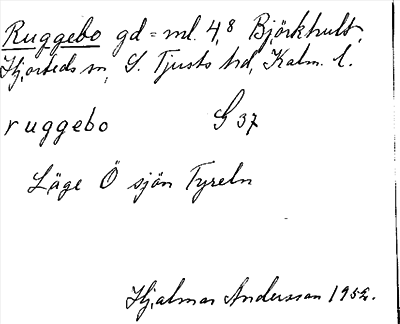 Ruggebo gd = ml. 4,8 Björkhult,
Hjorteds sn, S. Tjusts hd, Kalm. l.
ruggebo S 37
Läge Ö sjön Tyreln
Hjalmar Andersson 1952.